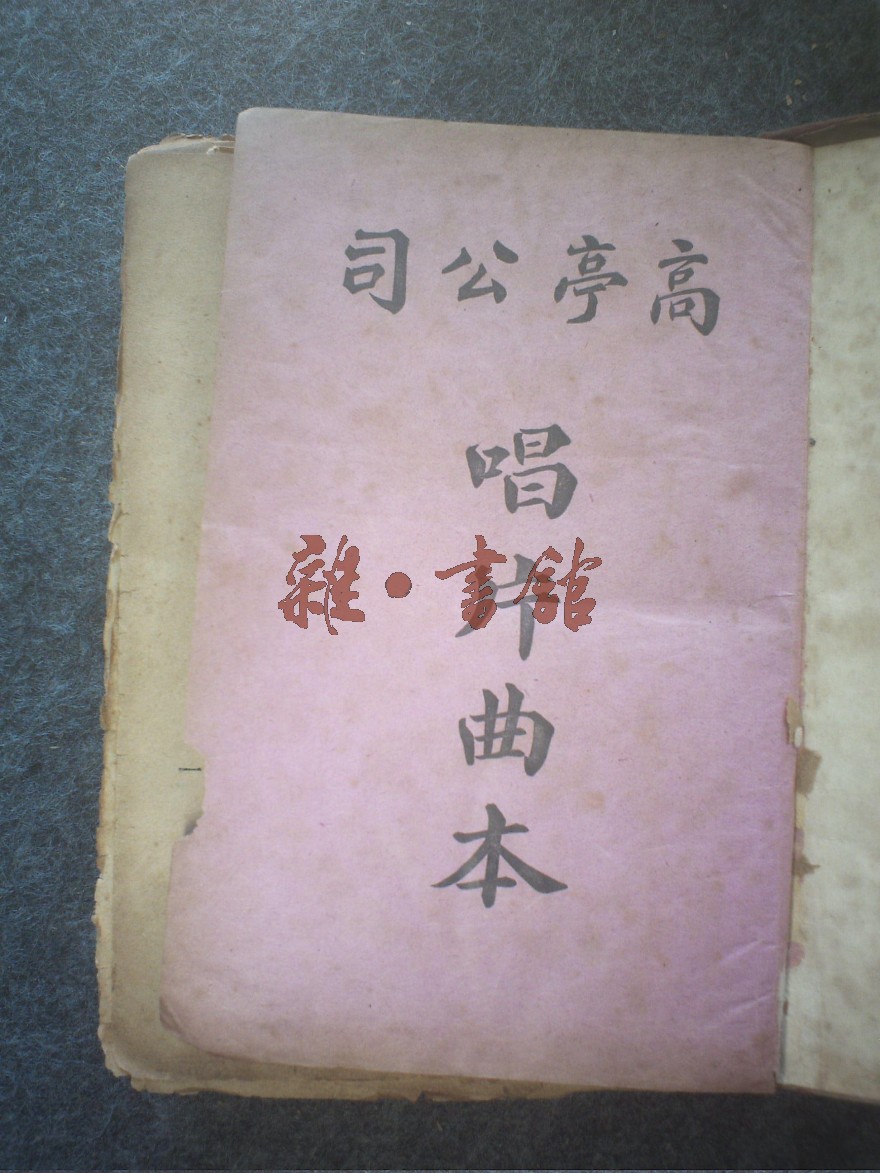 高亭公司
唱片曲本
雜·書館